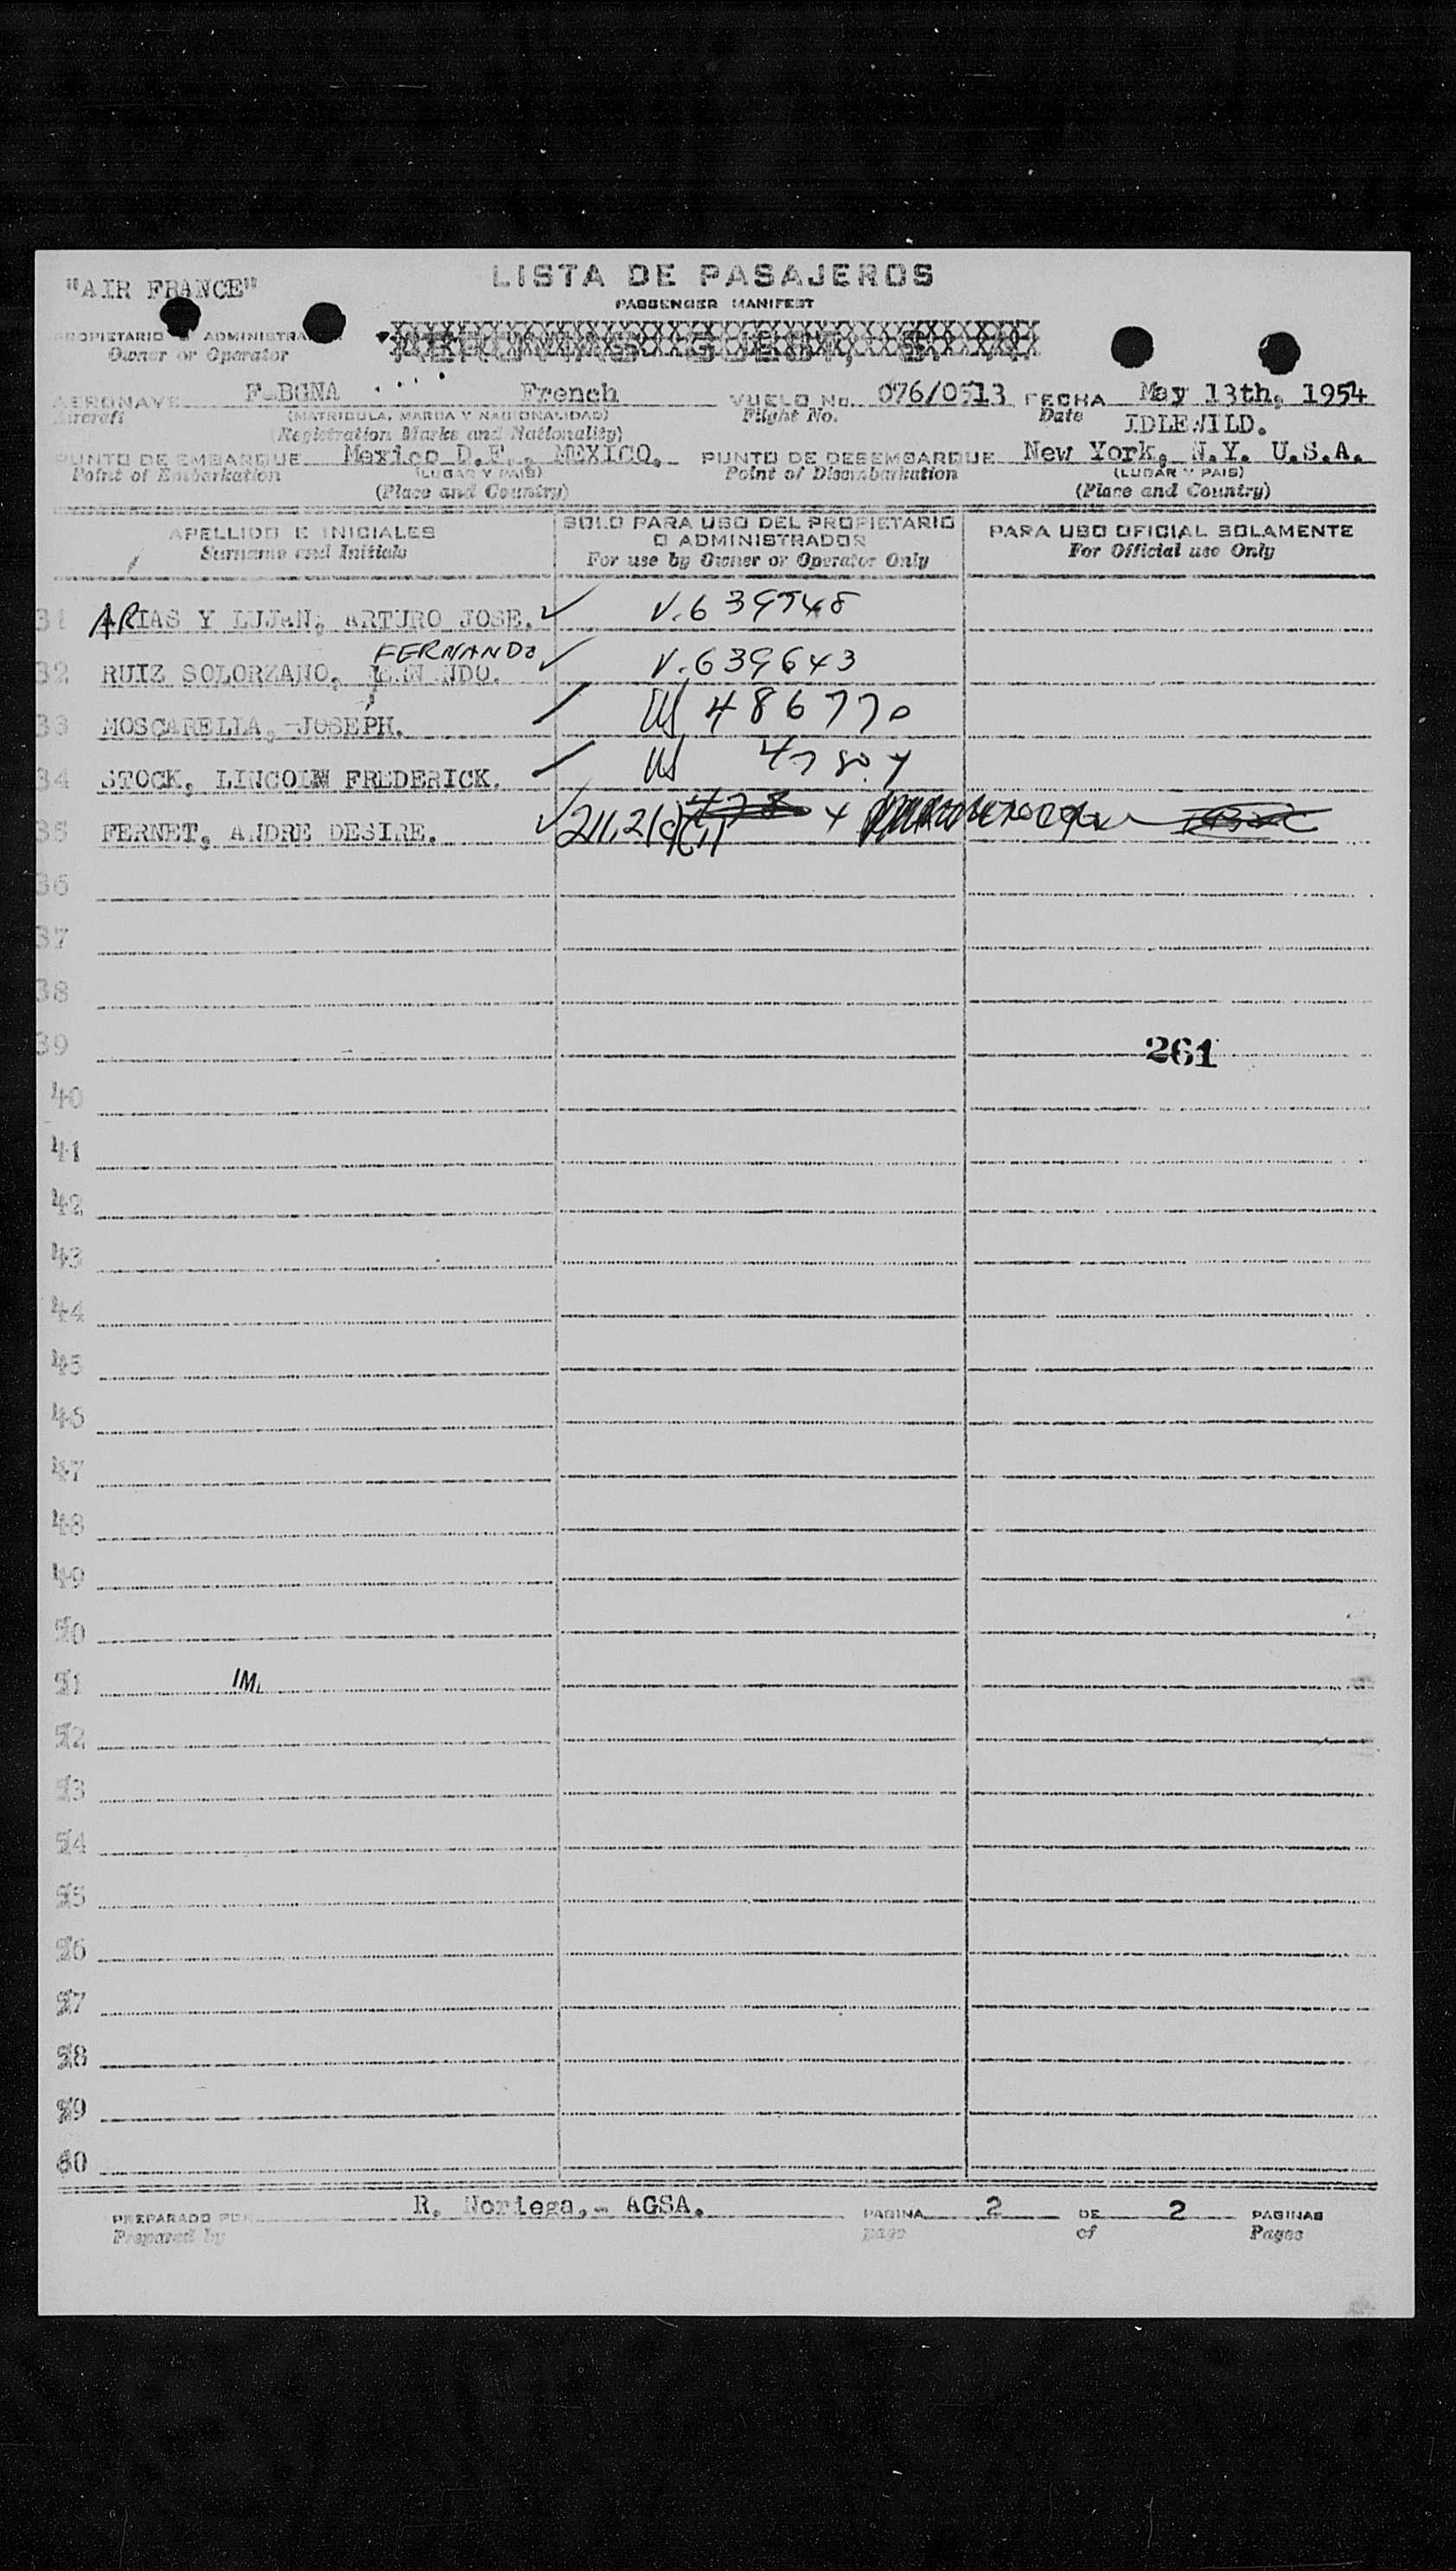 "AIR FRANCE"
LISTA DE PASAJEROS
PASSENGER MANIFEST
PROPIETARIO ADMINISTRA
Owner or Operator
AERONAVE F-BGNA French VUELO No. 076/0513 FECHA May 13th, 1954
Aircraft (MATRICULA, MARCA Y NACIONALIDAD) Flight No. Date IDLEWILD.
(Registration Marks and Nationality)
PUNTO DE EMBARQUE Mexico D.F., MEXICO. PUNTO DE DESEMBARQUE New York, N.Y. U.S.A.
Point of Embarkation (LUGAR Y PAIS) Point of Disembarkation (LUGAR Y PAIS)
(Place and Country) (Place and Country)
APELLIDO E INICIALES SOLO PARA USO DEL PROPIETARIO PARA USO OFICIAL SOLAMENTE
Surname and Initials O ADMINISTRADOR For Official use Only
For use by Owner or Operator Only
31 ARIAS Y LUJAN, ARTURO JOSE. ✓ V.639548
FERNANDO
32 RUIZ SOLORZANO, ✓ V.639643
33 MOSCARELLA, JOSEPH. US 486770
34 STOCK, LINCOLN FREDERICK. US
35 FERNET, ANDRE DESIRE. ✓
36
37
38
39 261
40
41
42
43
44
45
46
47
48
49
50
51 IM.
52
53
54
55
56
57
58
59
60
PREPARADO POR R. Noriega,- AGSA. PAGINA 2 DE 2 PAGINAS
Prepared by page of Pages